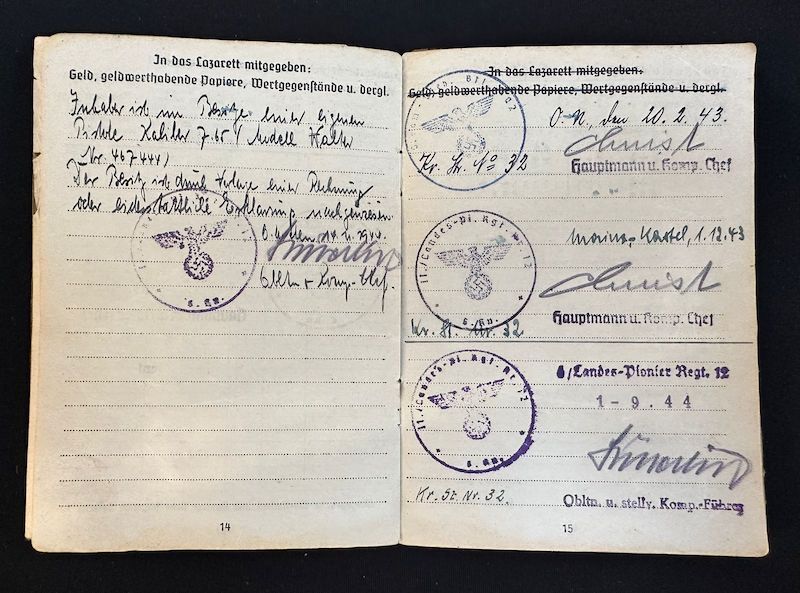 In das Lazarett mitgegeben:
Geld, geldwerthabende Papiere, Wertgegenstände u. dergl.
Inhaber ist im Besitze einer eigenen
Pistole Kaliber 7.65 Modell Walter
Nr. 467444)
Der Besitz ist durch Vorlage einer Rechnung
oder eidesstattliche Erklärung nachgewiesen.
14
In das Lazarett mitgegeben:
Geld, geldwerthabende Papiere, Wertgegenstände u. dergl.
O.N., den 20.2.43.
Kr. St. No 32
Hauptmann u. Komp. Chef
II./Landes-Pi. Rgt. Nr. 12
6. Kp.
Mainz-Kastel, 1.12.43
Hauptmann u. Komp. Chef
Kr. St. Nr. 32
6/Landes-Pionier Regt. 12
1-9.44
II./Landes-Pi. Rgt. Nr. 12
6. Kp.
Kr. St. Nr. 32.
Obltn. u. stellv. Komp.-Führer
15